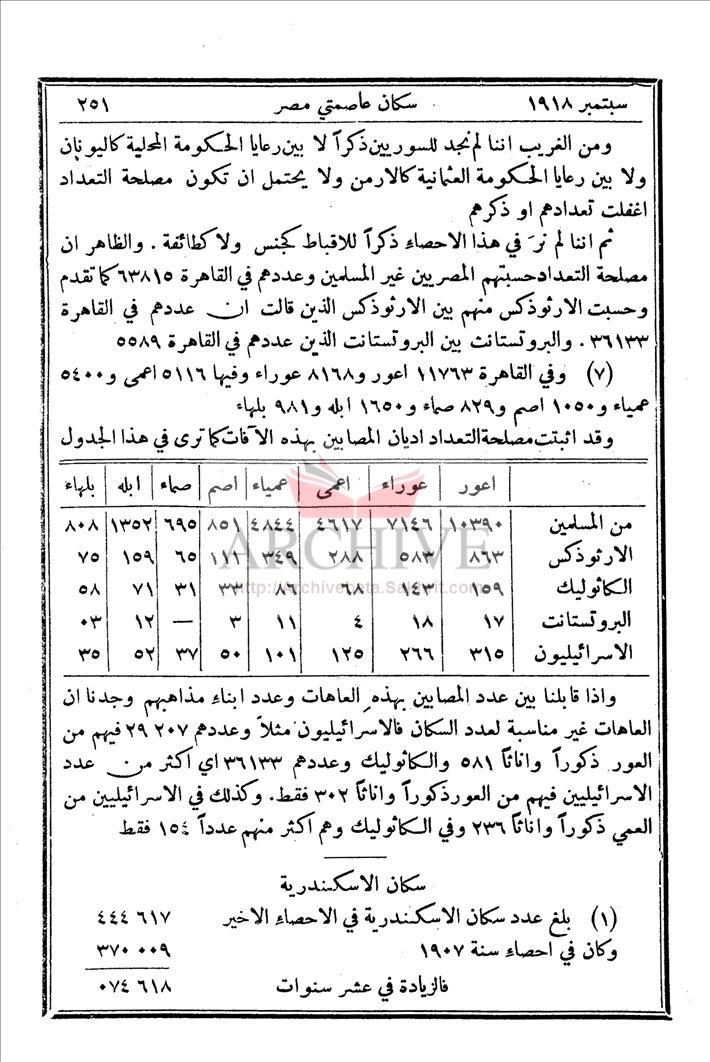 سبتمبر ١٩١٨ سكان عاصمتي مصر ٢٥١
ومن الغريب اننا لم نجد للسوريين ذكراً لا بين رعايا الحكومة المحلية كاليونان
ولا بين رعايا الحكومة العثمانية كالارمن ولا يحتمل ان تكون مصلحة التعداد
اغفلت تعدادهم او ذكرهم
ثم اننا لم نرَ في هذا الاحصاءِ ذكراً للاقباط كجنس ولا كطائفة . والظاهر ان
مصلحة التعداد حسبتهم المصريين غير المسلمين وعددهم في القاهرة ٦٣٨١٥ كما تقدم
وحسبت الارثوذكس منهم بين الارثوذكس الذين قالت ان عددهم في القاهرة
٣٦١٣٣ . والبروتستانت بين البروتستانت الذين عددهم في القاهرة ٥٥٨٩
(٧) وفي القاهرة ١١٧٦٣ اعور و٨١٦٨ عوراء وفيها ٥١١٦ اعمى و٥٤٠٠
عمياء و١٠٥٠ اصم و٨٢٩ صماء و١٦٥٠ ابله و٩٨١ بلهاء
وقد اثبتت مصلحة التعداد اديان المصابين بهذه الآفات كما ترى في هذا الجدول
اعور عوراء اعمى عمياء اصم صماء ابله بلهاء
من المسلمين ١٠٣٩٠ ٧١٤٦ ٤٦١٧ ٤٨٤٤ ٨٥١ ٦٩٥ ١٣٥٢ ٨٠٨
الارثوذكس ٨٦٣ ٥٨٣ ٢٨٨ ٣٤٩ ١١١ ٦٥ ١٥٩ ٧٥
الكاثوليك ١٥٩ ١٤٣ ٦٨ ٨٦ ٣٣ ٣١ ٧١ ٥٨
البروتستانت ١٧ ١٨ ٤ ١١ ٣ — ١٢ ٠٣
الاسرائيليون ٣١٥ ٢٦٦ ١٢٥ ١٠١ ٥٠ ٣٧ ٥٢ ٣٥
ARCHIVE
http://Archivebeta.Sakhrit.com
واذا قابلنا بين عدد المصابين بهذهِ العاهات وعدد ابناءِ مذاهبهم وجدنا ان
العاهات غير مناسبة لعدد السكان فالاسرائيليون مثلاً وعددهم ٢٠٧ ٢٩ فيهم من
العور ذكوراً واناثاً ٥٨١ والكاثوليك وعددهم ٣٦١٣٣ اي اكثر من عدد
الاسرائيليين فيهم من العور ذكوراً واناثاً ٣٠٢ فقط. وكذلك في الاسرائيليين من
العمي ذكوراً واناثاً ٢٣٦ وفي الكاثوليك وهم اكثر منهم عدداً ١٥٤ فقط
سكان الاسكندرية
(١) بلغ عدد سكان الاسكندرية في الاحصاءِ الاخير ٦١٧ ٤٤٤
وكان في احصاءِ سنة ١٩٠٧ ٠٠٩ ٣٧٠
فالزيادة في عشر سنوات ٦١٨ ٠٧٤